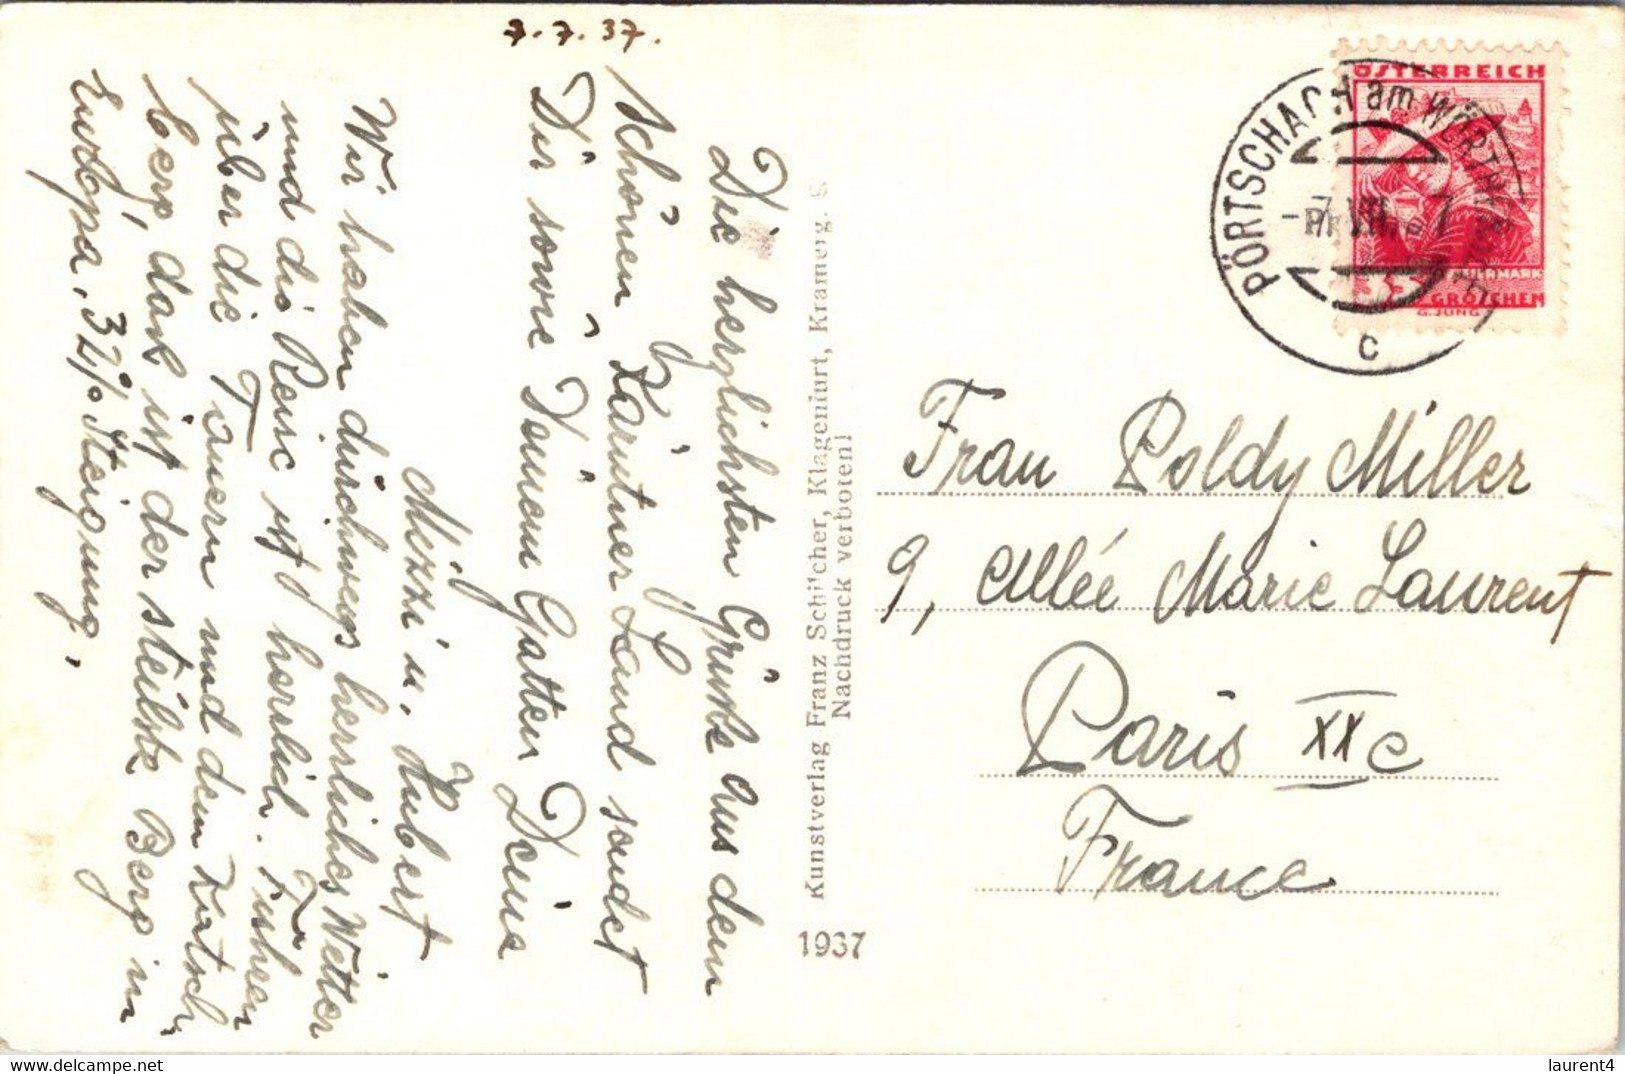 7.7.37.
Die herzlichsten Grüße aus dem
schönen Kärntner Land sendet
Dir sowie Deinem Gatten Deine
Mizzi u. Hubert
Wir haben durchwegs herrliches Wetter
und die Reise ist herrlich. Fuhren
über die Tauern und den Katsch
berg, das ist der steilste Berg in
Europa, 32% Steigung.
Kunstverlag Franz Schilcher, Klagenfurt, Kramerg.
Nachdruck verboten!
1937
ÖSTERREICH
STEIERMARK
35 GROSCHEN
G. JUNG
PÖRTSCHACH am WÖRTHERSEE
-7.VII.37
c
Frau Poldy Miller
9, Allée Marie Laurent
Paris XXe
France
laurent4